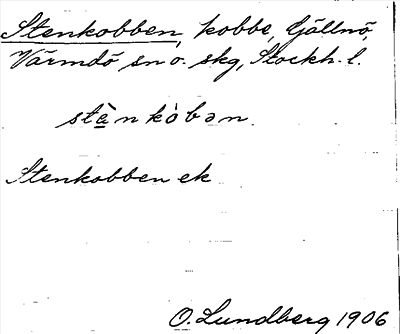 Stenkobben, kobbe, Gällnö,
Värmdö sn o. skg, Stockh. l.
stὲnkòbən.
Stenkobben ek
O. Lundberg 1906